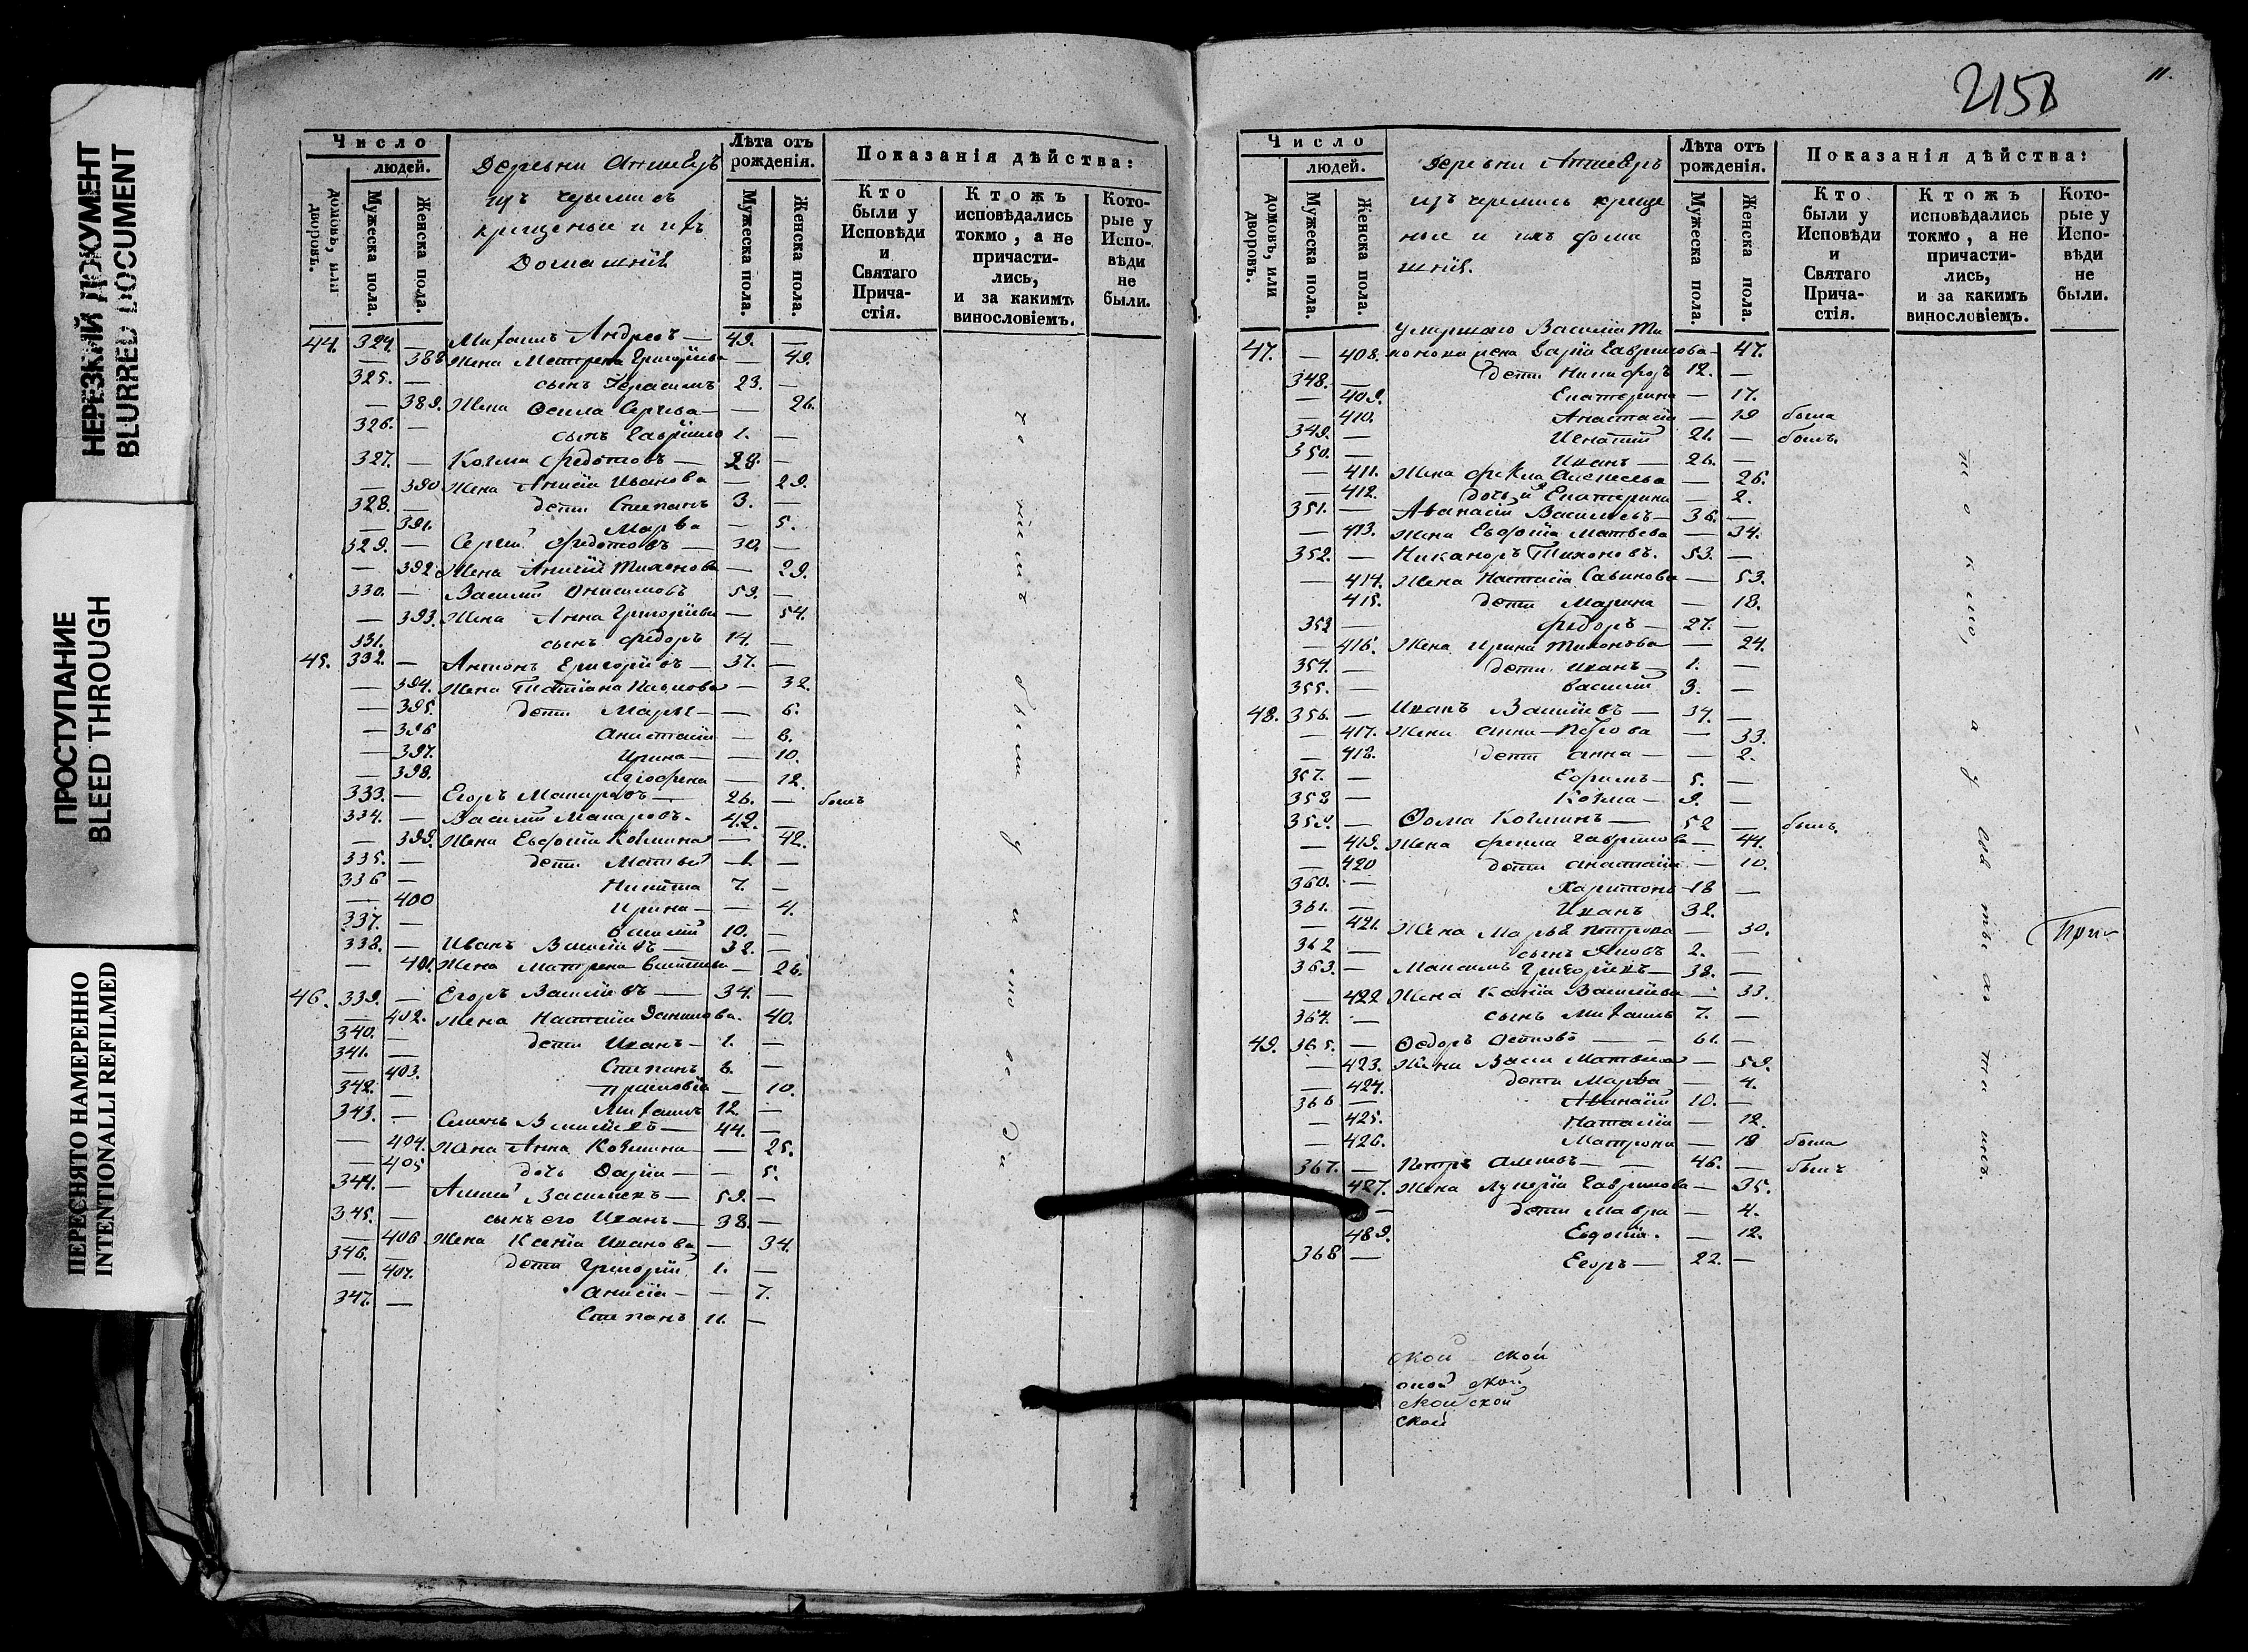 НЕРЕЗКИЙ ДОКУМЕНТ
BLURRED DOCUMENT
ПРОСТУПАНИЕ
BLEED THROUGH
ПЕРЕСНЯТО НАМЕРЕННО
INTENTIONALLI REFILMED
Число
людей.
домовъ, или дворовъ.
Мужеска пола.
Женска пола.
Деревни
изъ черемисъ
крещеные и ихъ
Домашнiе
Лѣта отъ рожденія.
Мужеска пола.
Женска пола.
Показанія дѣйства:
Кто были у Исповѣди и Святаго Прича-стія.
Ктожъ исповѣдались токмо, а не причасти-лись, и за какимъ винословіемъ.
Кото-рые у Испо-вѣди не были.
44. 324. — Михаилъ Андреевъ — 49. —
— 388 Жена Матрена Григорiева — 49.
325. — сынъ Герасимъ 23. —
— 389. Жена Сергѣева — — 26.
326. — сынъ Гаврiило 1. —
327. — Козма Федотовъ — 28. —
— 390 Жена Анисiя Иванова — 29.
328. — дети Степанъ 3. —
— 391. Марѳа — 5.
329. — Сергѣй Федотовъ — 30. —
— 392. Жена Анисiя Тихонова — 29.
330. — Василiй Онисимовъ 59. —
— 393. Жена Анна Григорiева — 54.
331. — сынъ Федоръ 14. —
45. 332. — Антонъ Григорiевъ — 37. —
— 394. Жена Татiана Павлова — 32.
— 395. дети Марья — — 6.
— 396 Анастасiя — 8.
— 397. Ирина — — 10.
— 398. — 12.
333. — Егоръ Макаровъ — 26. — былъ
334. — Василiй Макаровъ. 42. —
— 399. Жена Евдокiя Козмина — 42.
335. — дети Матвѣй 1. —
336 — Никита 7. —
— 400 Ирина — — 4.
337. — Василiй 10. —
338. — Иванъ Василiевъ — 32. —
— 401. Жена Матрена Василiева — 26.
46. 339. — Егоръ Василiевъ — 34. —
— 402. Жена Настасiя Данилова. 40.
340. — дети Иванъ — 1. —
341. — Степанъ 6. —
— 403. — 10.
342. — Михаилъ 12. —
343. — Семенъ Василiевъ — 44. —
— 404. Жена Анна Козмина — — 25.
— 405 дочь Дарiя — — 5.
344. — Алексѣй Василiевъ — 59. —
345. — сынъ его Иванъ — 38. —
— 406 Жена Ксенiя Иванова — 34.
346. — дети Григорiй 1. —
— 407. Анисiя — — 7.
347. — Степанъ 11. —
2158
11.
Число
людей.
домовъ, или дворовъ.
Мужеска пола.
Женска пола.
Деревни
изъ черемисъ креще
ные и ихъ дома
шнiе.
Лѣта отъ рожденія.
Мужеска пола.
Женска пола.
Показанія дѣйства:
Кто были у Исповѣди и Святаго Прича-стія.
Ктожъ исповѣдались токмо, а не причасти-лись, и за какимъ винословіемъ.
Кото-рые у Испо-вѣди не были.
умершаго Василiя Ти
47. — 408. хонова жена Дарiя Гаврилова — 47.
348. — дети Никифоръ 12. —
— 409. Екатерина — 17.
— 410. Анастасiя — 19 была
349. — Игнатiй 21. — былъ.
350. — Иванъ — 26. —
— 411. Жена Ѳекла Алексѣева — 26.
— 412. дочь и Екатерина — 2.
351. — Аѳанасiй Василiевъ — 36. —
— 413. Жена Евдокiя Матвѣева — 34.
352 — Никаноръ Тихоновъ. 53. —
— 414. Жена Настасiя Савинова — 53.
415. дети Марина — 18.
353 — Федоръ — 27. —
— 416. Жена Ирина Тихонова — 24.
354. — дети Иванъ — 1. —
355. — Василiй 3. —
48. 356. — Иванъ Василiевъ — 34. —
— 417. Жена Анна Петрова — 33.
— 418. дети Анна — — 2.
357. — Ефремъ — 5. —
358 — Козма — 9. —
359. — Ѳома Козминъ — 52 — былъ.
— 419. Жена Гаврилова — 44.
— 420 дети Анастасiя — 10.
360. — Харитонъ 18 —
361. — Иванъ 32.
— 421. Жена Марья Петрова — 30.
362 — сынъ Яковъ 2. —
363. — Максимъ Григорiевъ — 38. —
— 422 Жена Ксенiя Василiева — 33.
364. — сынъ Михаилъ 7. —
49. 365. — Ѳедоръ — — 61. —
— 423. Жена Васи Матвѣева — 59.
— 424. дети Марѳа — 4.
366 — Аѳанасiй 10. —
— 425. Наталiя — 12.
— 426. Матрона — 18 была
367. — Петръ — — 46. — былъ
427. Жена Лукерiя Гаврилова — 35.
— дети Мавра — 4.
489. Евдокiя. — 12.
368 — Егоръ — 22. —
При
ской ской
ской ской
ской ской
ской